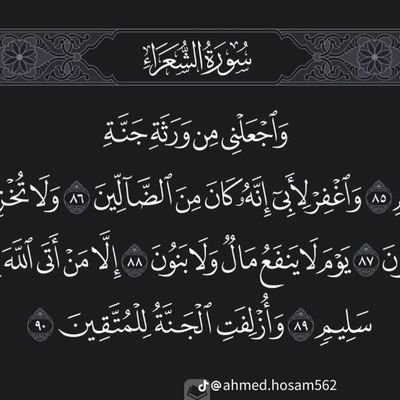 سُورَةُ الشُّعَرَاءِ
وَٱجْعَلْنِى مِن وَرَثَةِ جَنَّةِ
٨٥ وَٱغْفِرْ لِأَبِىٓ إِنَّهُۥ كَانَ مِنَ ٱلضَّآلِّينَ ٨٦ وَلَا تُخْزِ
٨٧ يَوْمَ لَا يَنفَعُ مَالٌ وَلَا بَنُونَ ٨٨ إِلَّا مَنْ أَتَى ٱللَّهَ
سَلِيمٍ ٨٩ وَأُزْلِفَتِ ٱلْجَنَّةُ لِلْمُتَّقِينَ ٩٠
@ahmed.hosam562